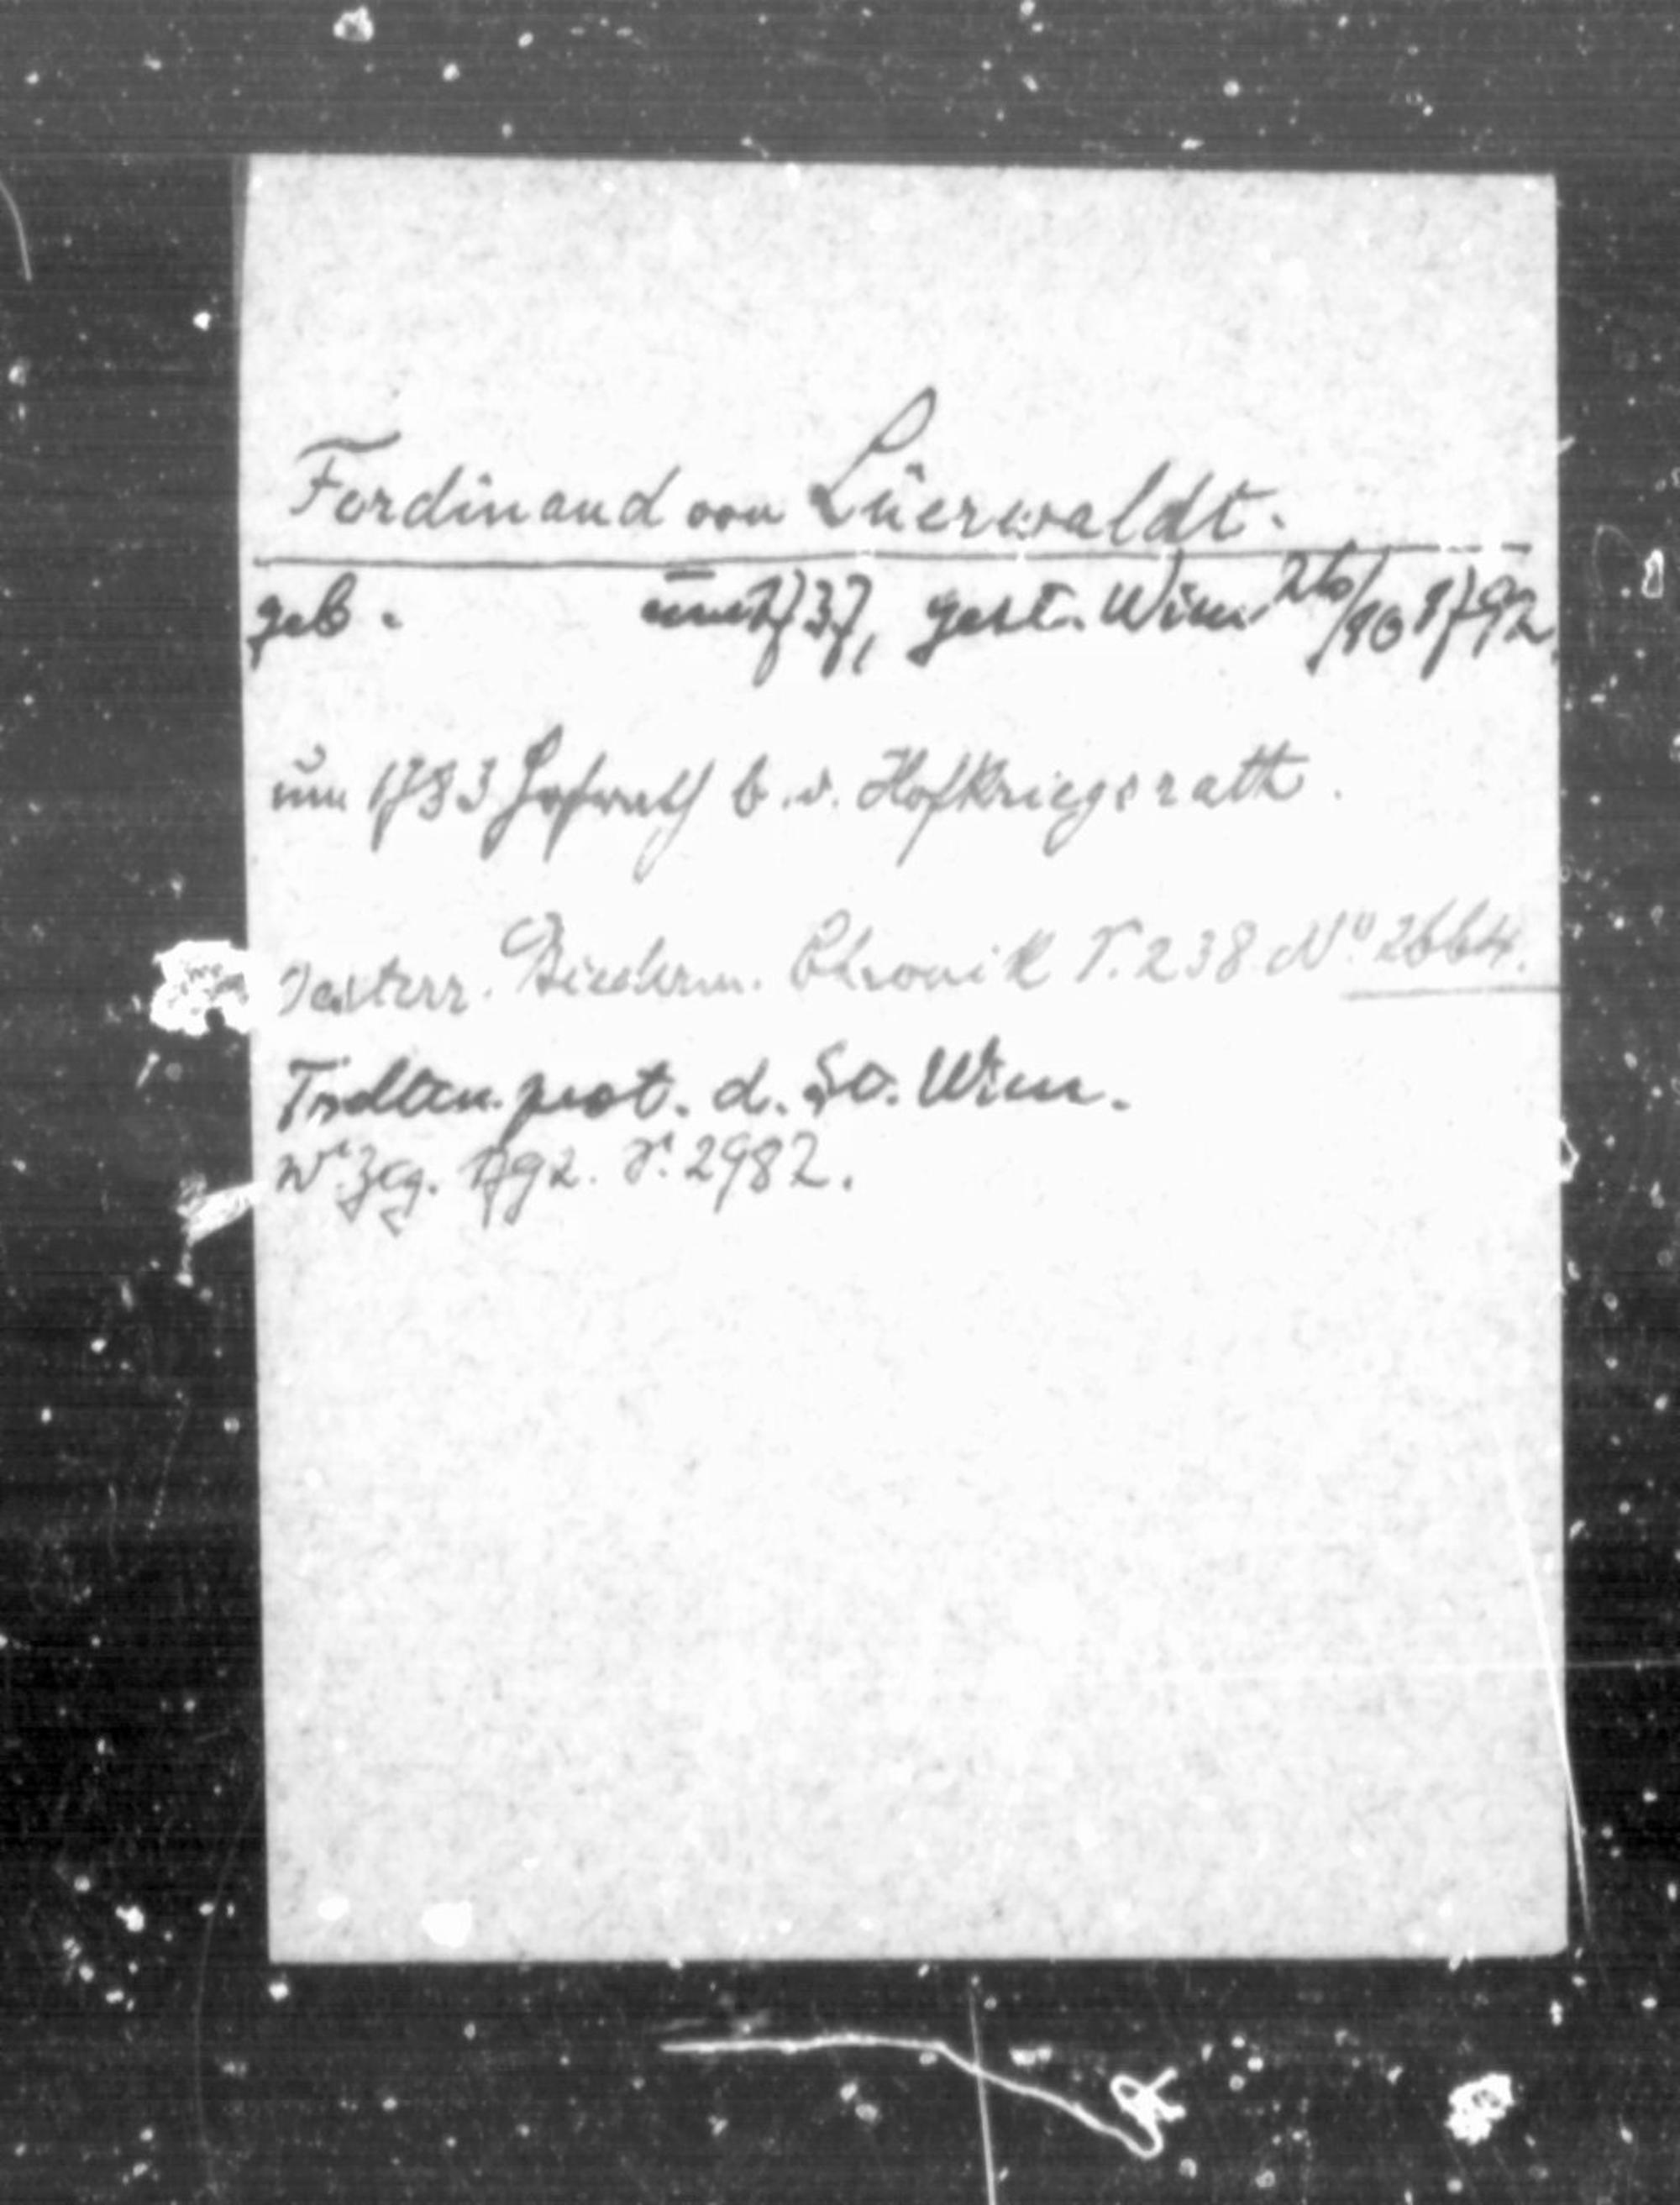 Ferdinand von Lüerwaldt.
geb. um 1737, gest. Wien 26/10 1792.
um 1783 Hofrath b. d. Hofkriegsrath.
Oesterr. Biederm. Chronik S. 238 No. 2664.
Todten prot. d. St. Wien.
Wr. Ztg. 1792. S. 2982.